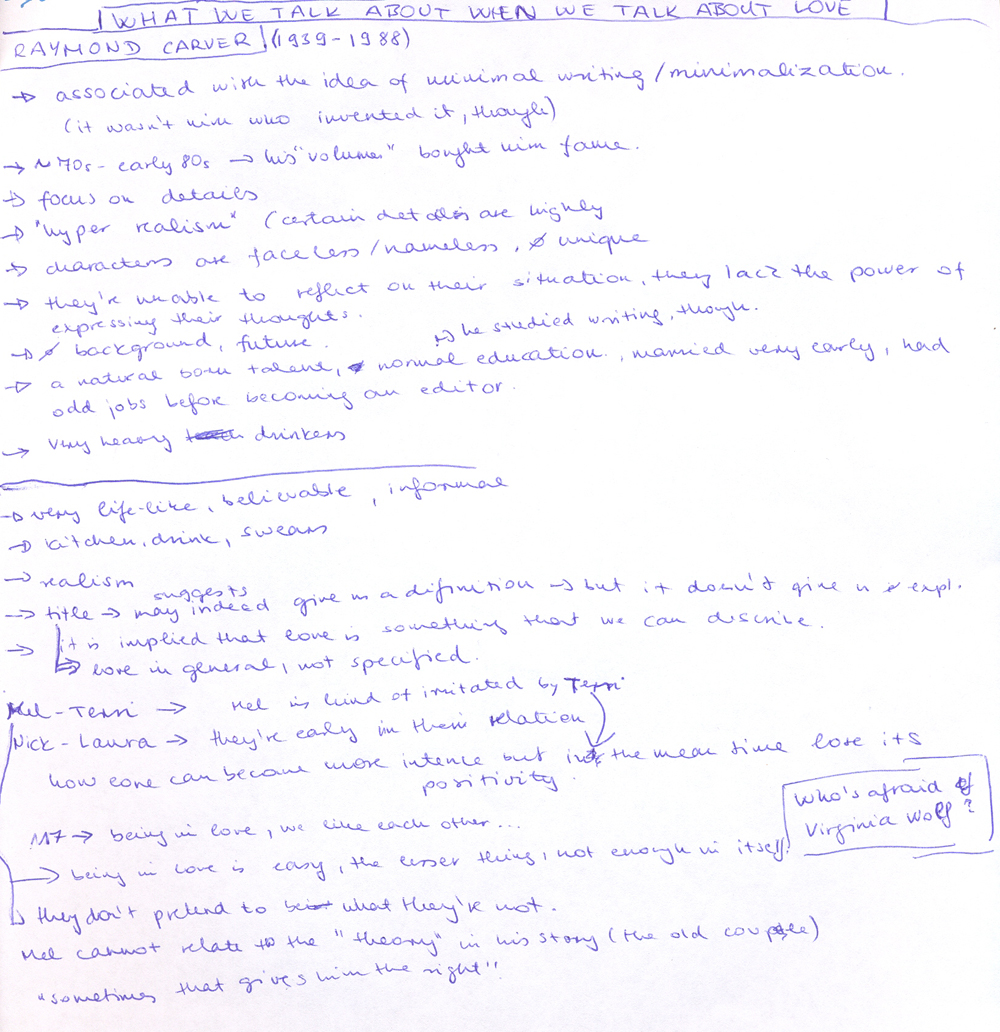 WHAT WE TALK ABOUT WHEN WE TALK ABOUT LOVE
RAYMOND CARVER (1939-1988)
→ associated with the idea of minimal writing/minimalization.
(it wasn't him who invented it, though)
→ ~70s- early 80s → his "volumes" bought him fame.
→ focus on details
→ "hyper realism" (certain details are highly
→ characters are faceless/nameless, ∅ unique
→ they're unable to reflect on their situation, they lack the power of
expressing their thoughts.
→ ∅ background, future.
↪ he studied writing, though.
→ a natural born talent, normal education., married very early, had
odd jobs before becoming an editor.
→ very heavy drinkers
→ very life-like, believable, informal
→ kitchen, drink, swears
→ realism
suggests
→ title → may indeed give us a difinition → but it doesn't give expl.
→ it is implied that love is something that we can discribe.
↳ love in general, not specified.
Mel-Terri → Mel is kind of irritated by Terri
Nick-Laura → they're early in their relation
how one can became more intence but in the mean time lose its
positivity.
Who's afraid of
Virginia Wolf?
117 → being in love, we like each other...
→ being in love is easy, the lesser thing, not enough in itself.
↳ they don't pretend to be what they're not.
Mel cannot relate to the "theory" in his story (the old couple)
"sometimes that gives him the right"!